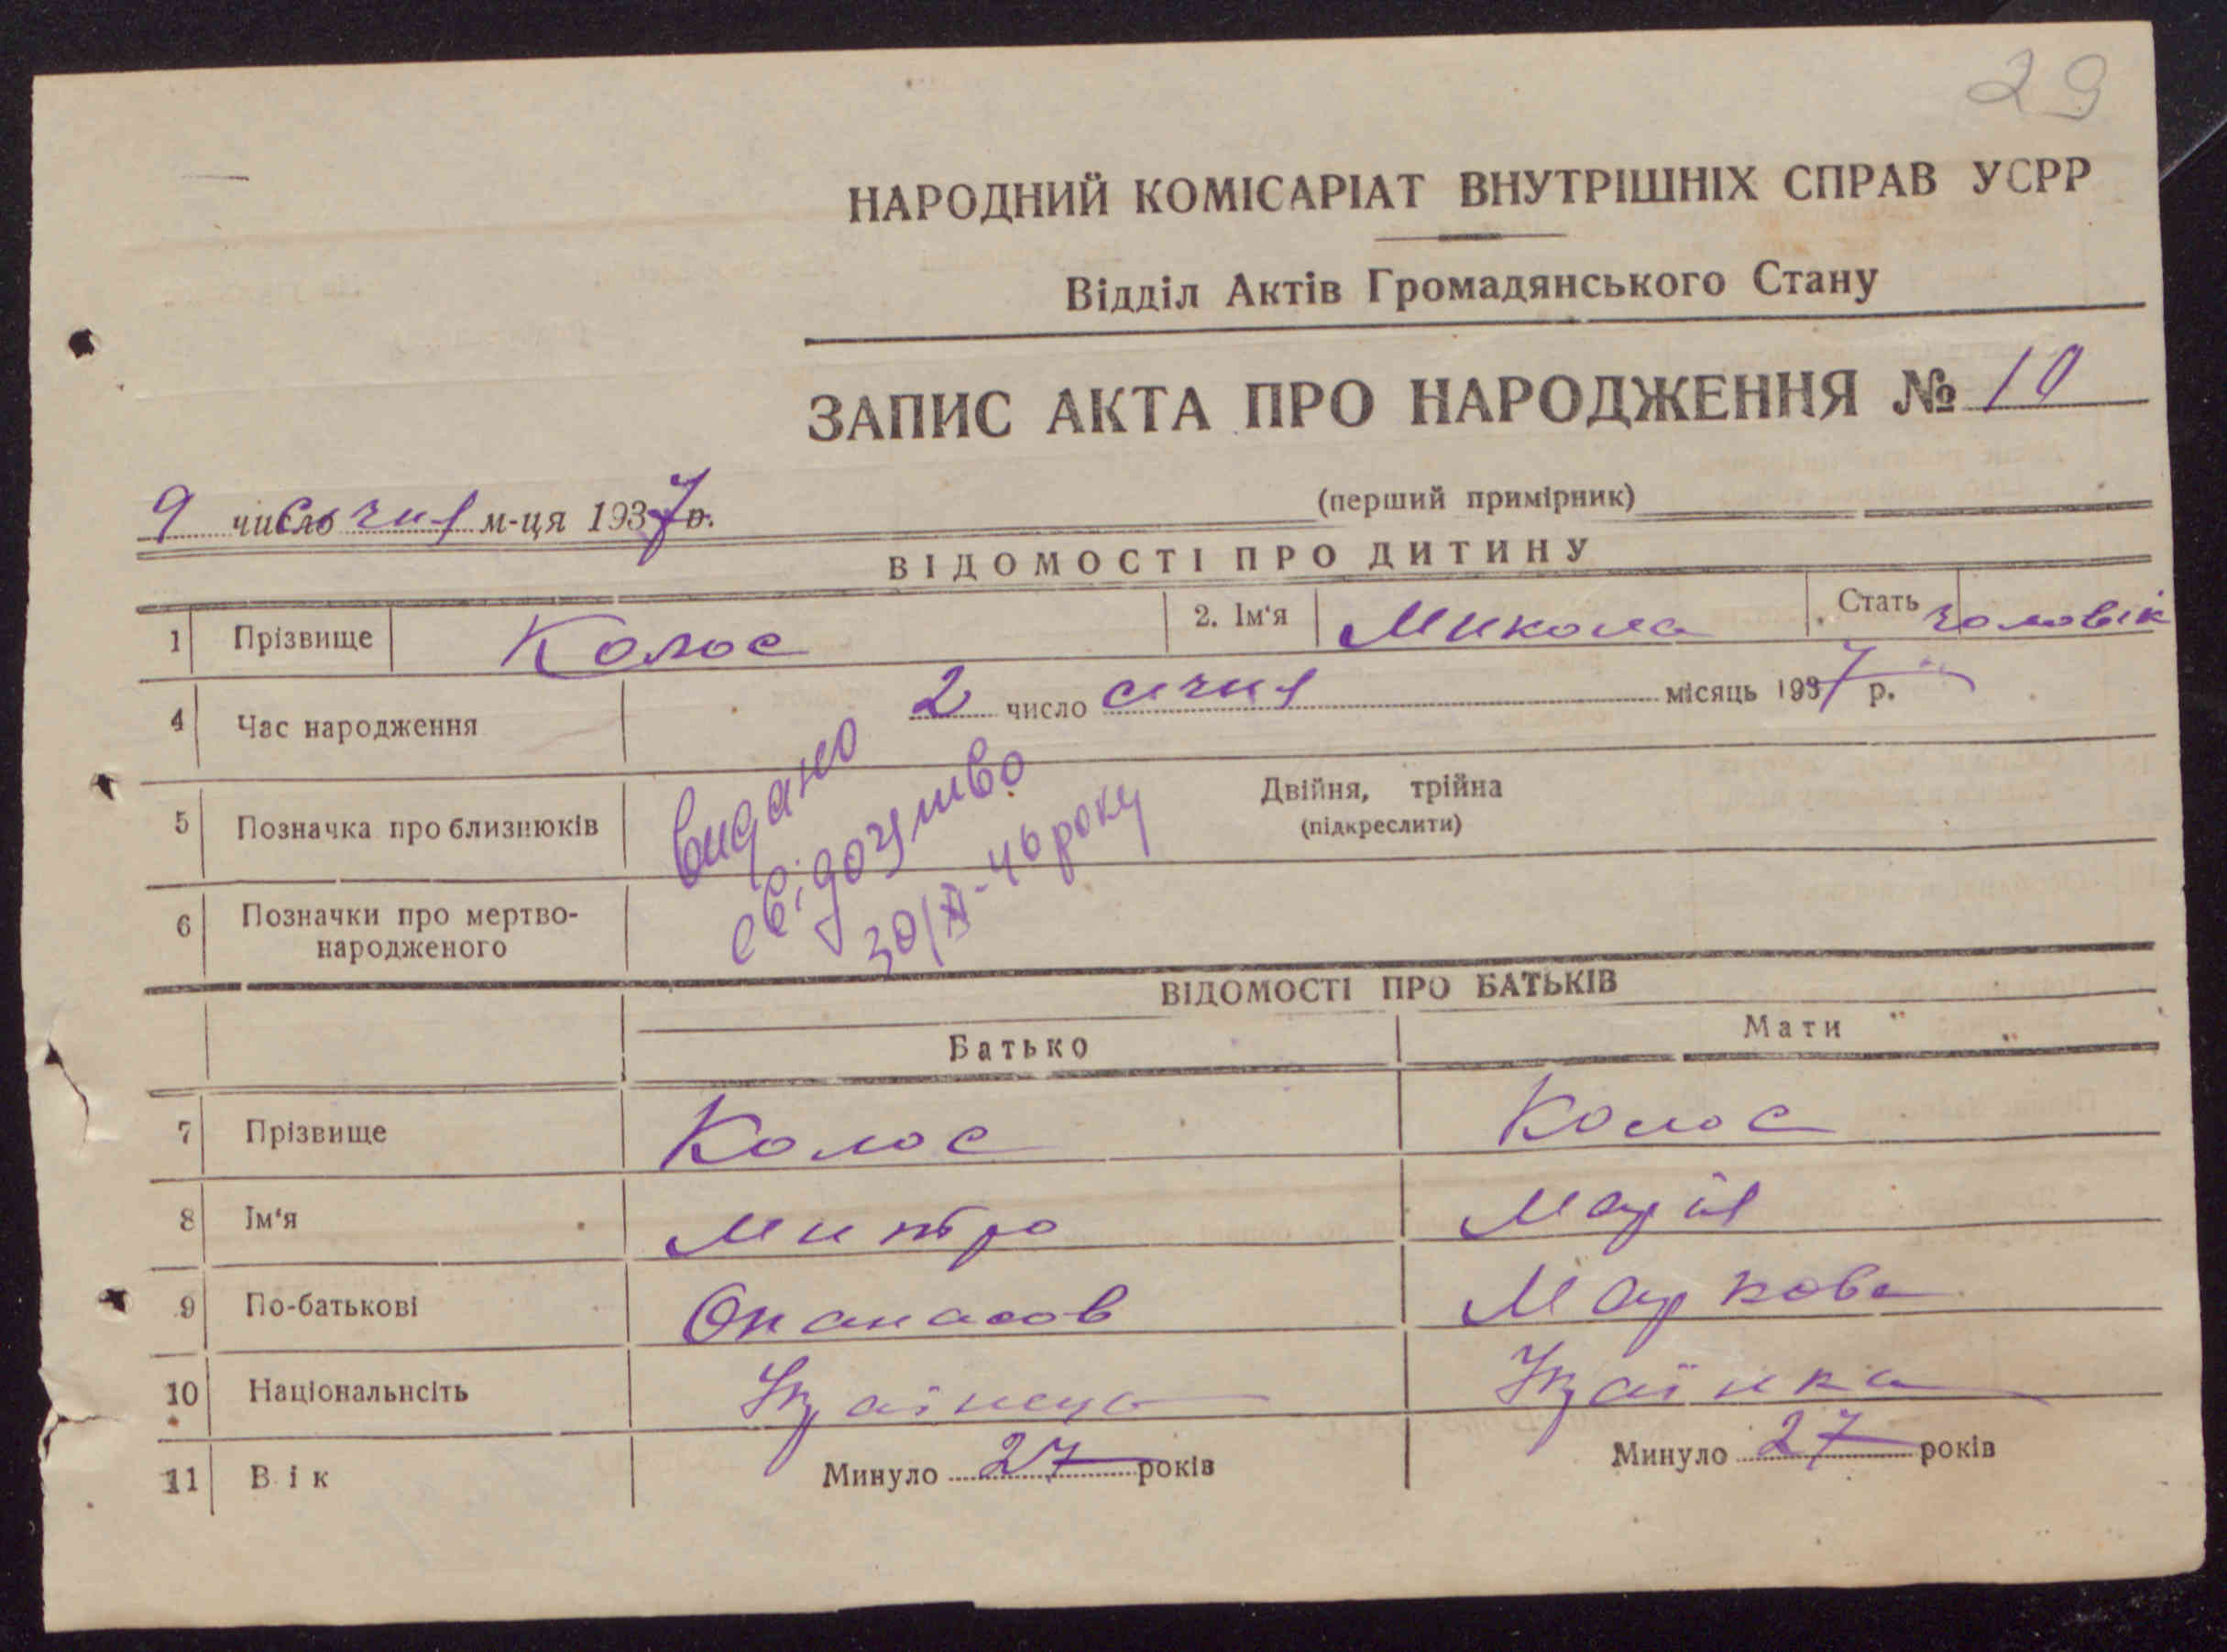 29
НАРОДНИЙ КОМІСАРІАТ ВНУТРІШНІХ СПРАВ УСРР
Відділ Актів Громадянського Стану
ЗАПИС АКТА ПРО НАРОДЖЕННЯ № 10
(перший примірник)
9 число січня м-ця 1937 р.
ВІДОМОСТІ ПРО ДИТИНУ
1 Прізвище Колос 2. Ім'я Микола Стать чоловік
4 Час народження 2 число січня місяць 1937 р.
5 Позначка про близнюків Двійня, трійна
(підкреслити)
видано
свідоцтво
30/XI-46 року
6 Позначки про мертво-
народженого
ВІДОМОСТІ ПРО БАТЬКІВ
Батько Мати
7 Прізвище Колос Колос
8 Ім'я Митро Марія
9 По-батькові Опанасов Маркова
10 Національнсіть Українець Українка
11 Вік Минуло 27 років Минуло 27 років